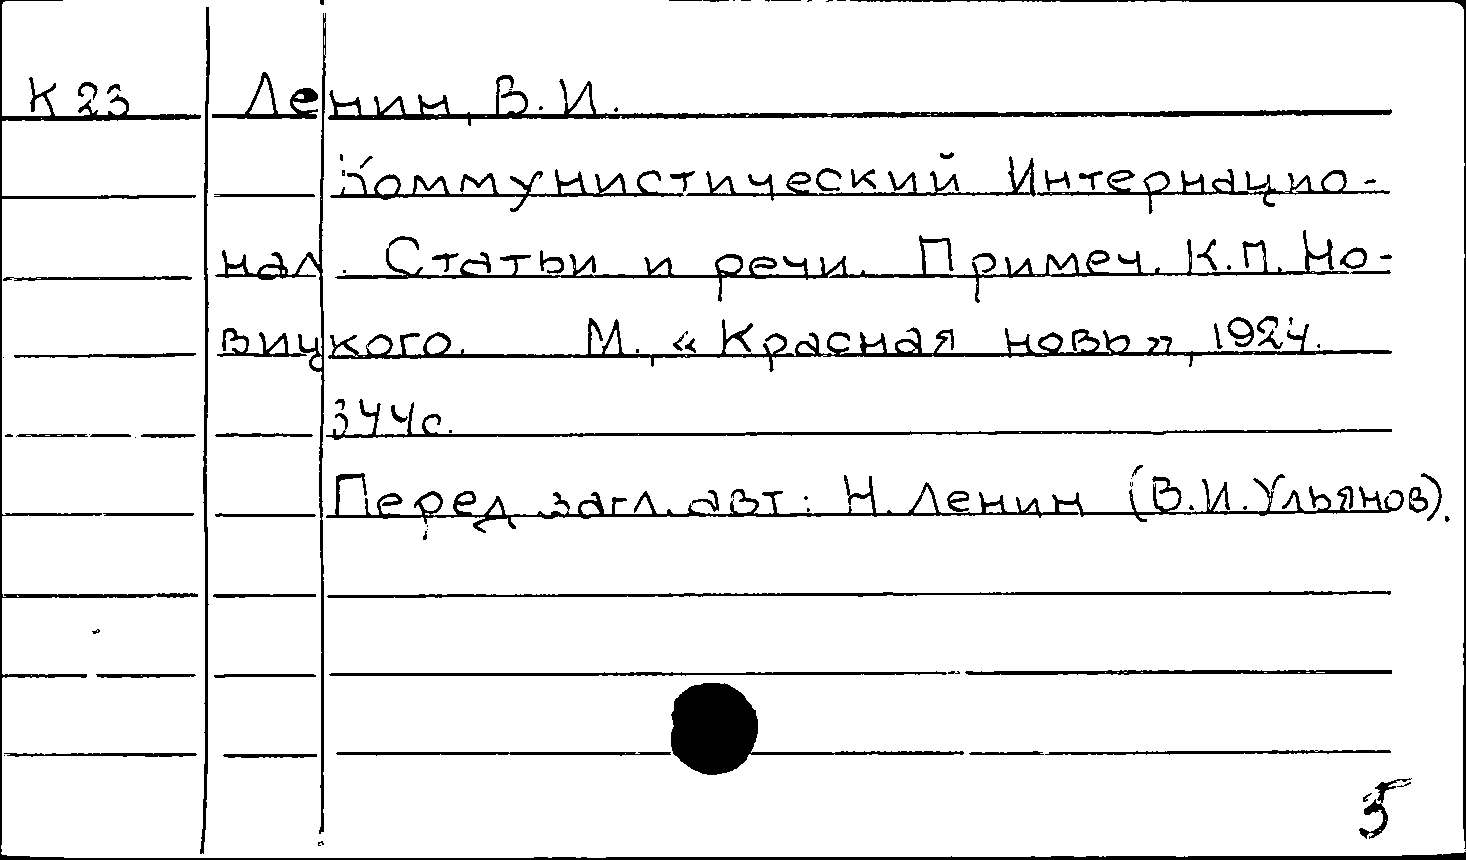 К 23 Ленин, В. И.
Коммунистический Интернацио-
нал. Статьи и речи. Примеч. К.П. Но-
вицкого. М., «Красная новь», 1924.
344с.
Перед загл. авт: Н. Ленин (В.И. Ульянов).
5